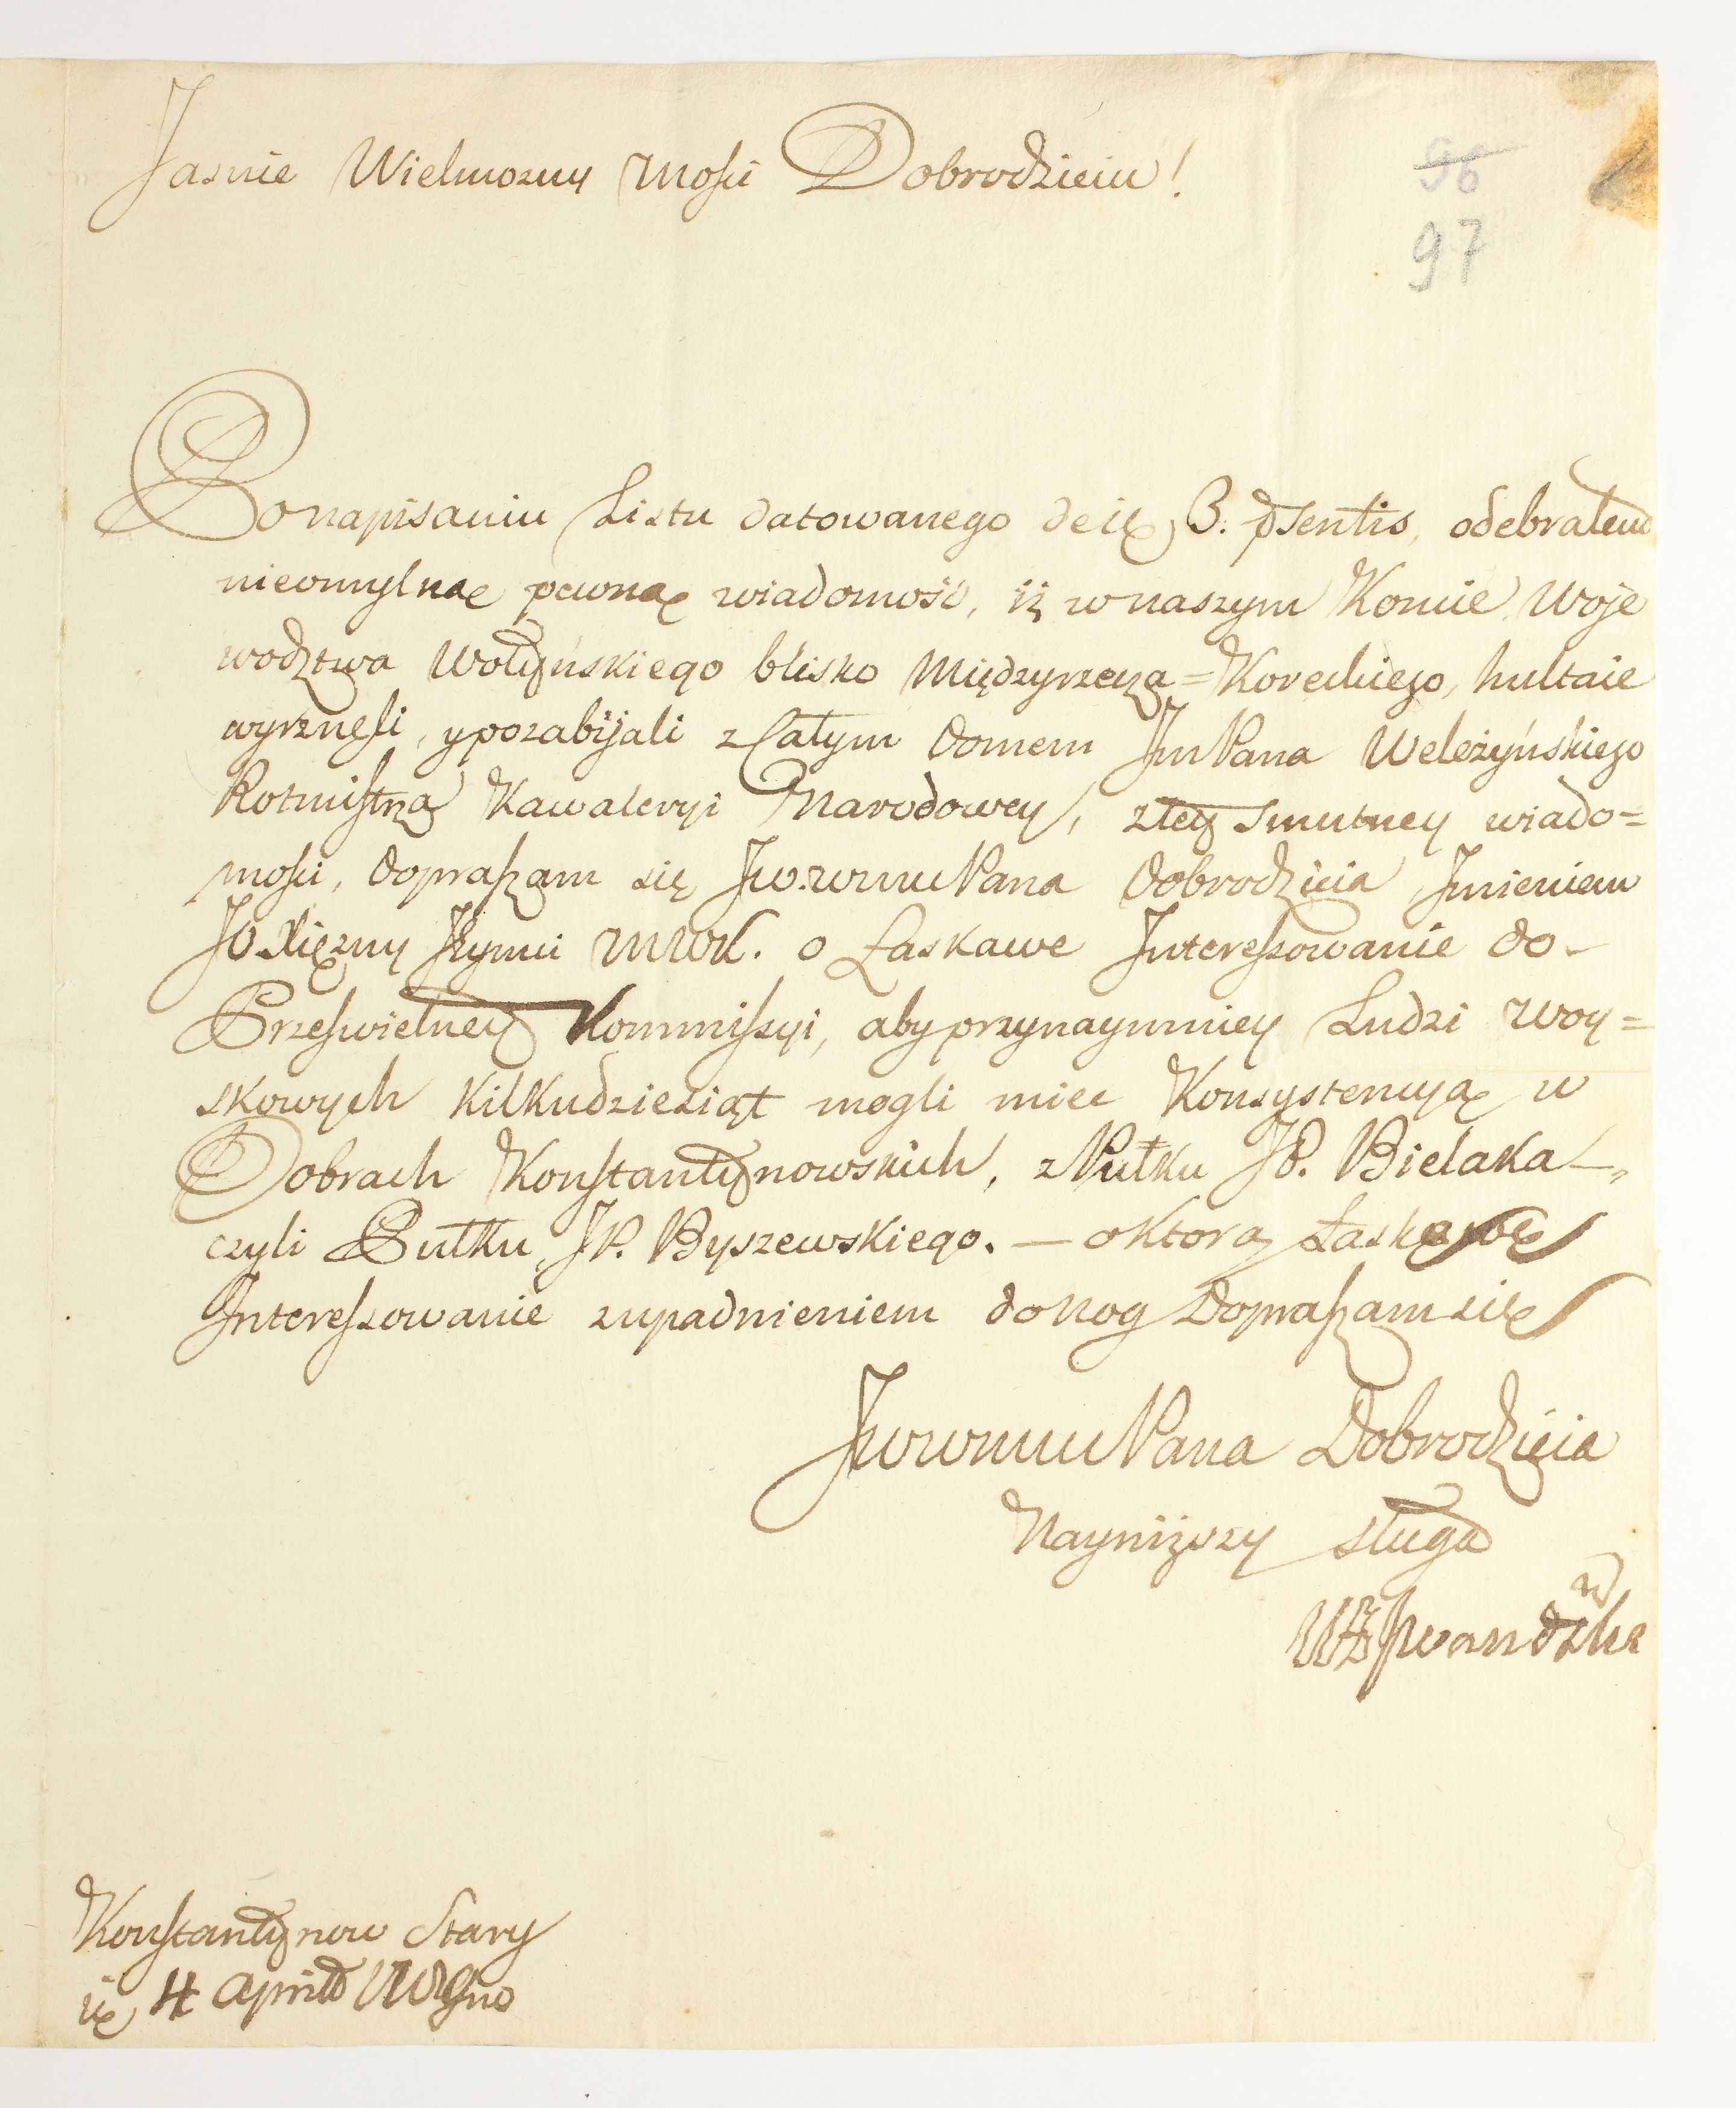 Jasnie Wielmozny Mosci Dobrodzieiu!
96
97
Po napisaniu Listu datowanego die 3. psentis, odebrałem
nieomylnąe pewnąe wiadomość, iż w naszym Koncie Woje
wodztwa Wołyńskiego blisko Międzyrzecza=Koreckiego, hultaie
wyrzneli, y pozabijali z Całym Domem JmPana Weleżyńskiego
Rotmistrza Kawaleryi Narodowey, z tey smutney wiado=
mosci, dopraszam się Jw. wmu Pana Dobrodzieia Jmieniem
JO Xiężny Jeymci o Łaskawe Interessowanie do-
Przeswietney Kommissyi, aby przynaymniey Ludzi woy=
skowych kilkudziesiąt mogli miec Konsystencyą w
Dobrach Konstantynowskich, z Pułku JP. Bielaka—,
czyli Pułku JP. Byszewskiego. — o ktorą Łaskawe
Interessowanie z upadnieniem do nog Dopraszam się
Jwwmu Pana Dobrodzieia
Nayniższy sługa
Konstantynow Stary
4 April